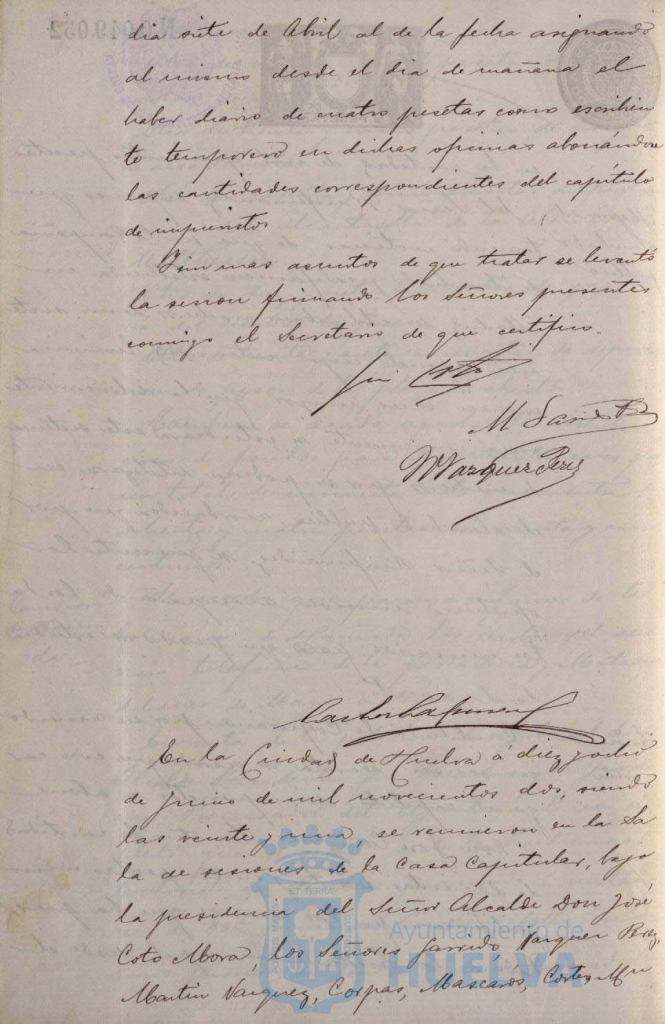 dia siete de Abril al de la fecha asignando
al mismo desde el dia de mañana el
haber diario de cuatro pesetas como escribien
te temporero en dichas oficinas abonándose
las cantidades correspondientes del capitulo
de imprevistos
Sin mas asuntos de que tratar se levantó
la sesion firmando los Señores presentes
comigo el Secretario de que certifico.
M
Vazquez Perez
En la Ciudad de Huelva á diez y ocho
de Junio de mil novecientos dos, siendo
las veinte y una, se reunieron en la Sa
la de sesiones de la casa Capitular, bajo
la presidencia del Señor Alcalde Don José
Coto Mora, los Señores Garrido, Vazquez Perez,
Martin Vazquez, Corpas, Mascarós, Cortes, Mu
Ayuntamiento de
HUELVA